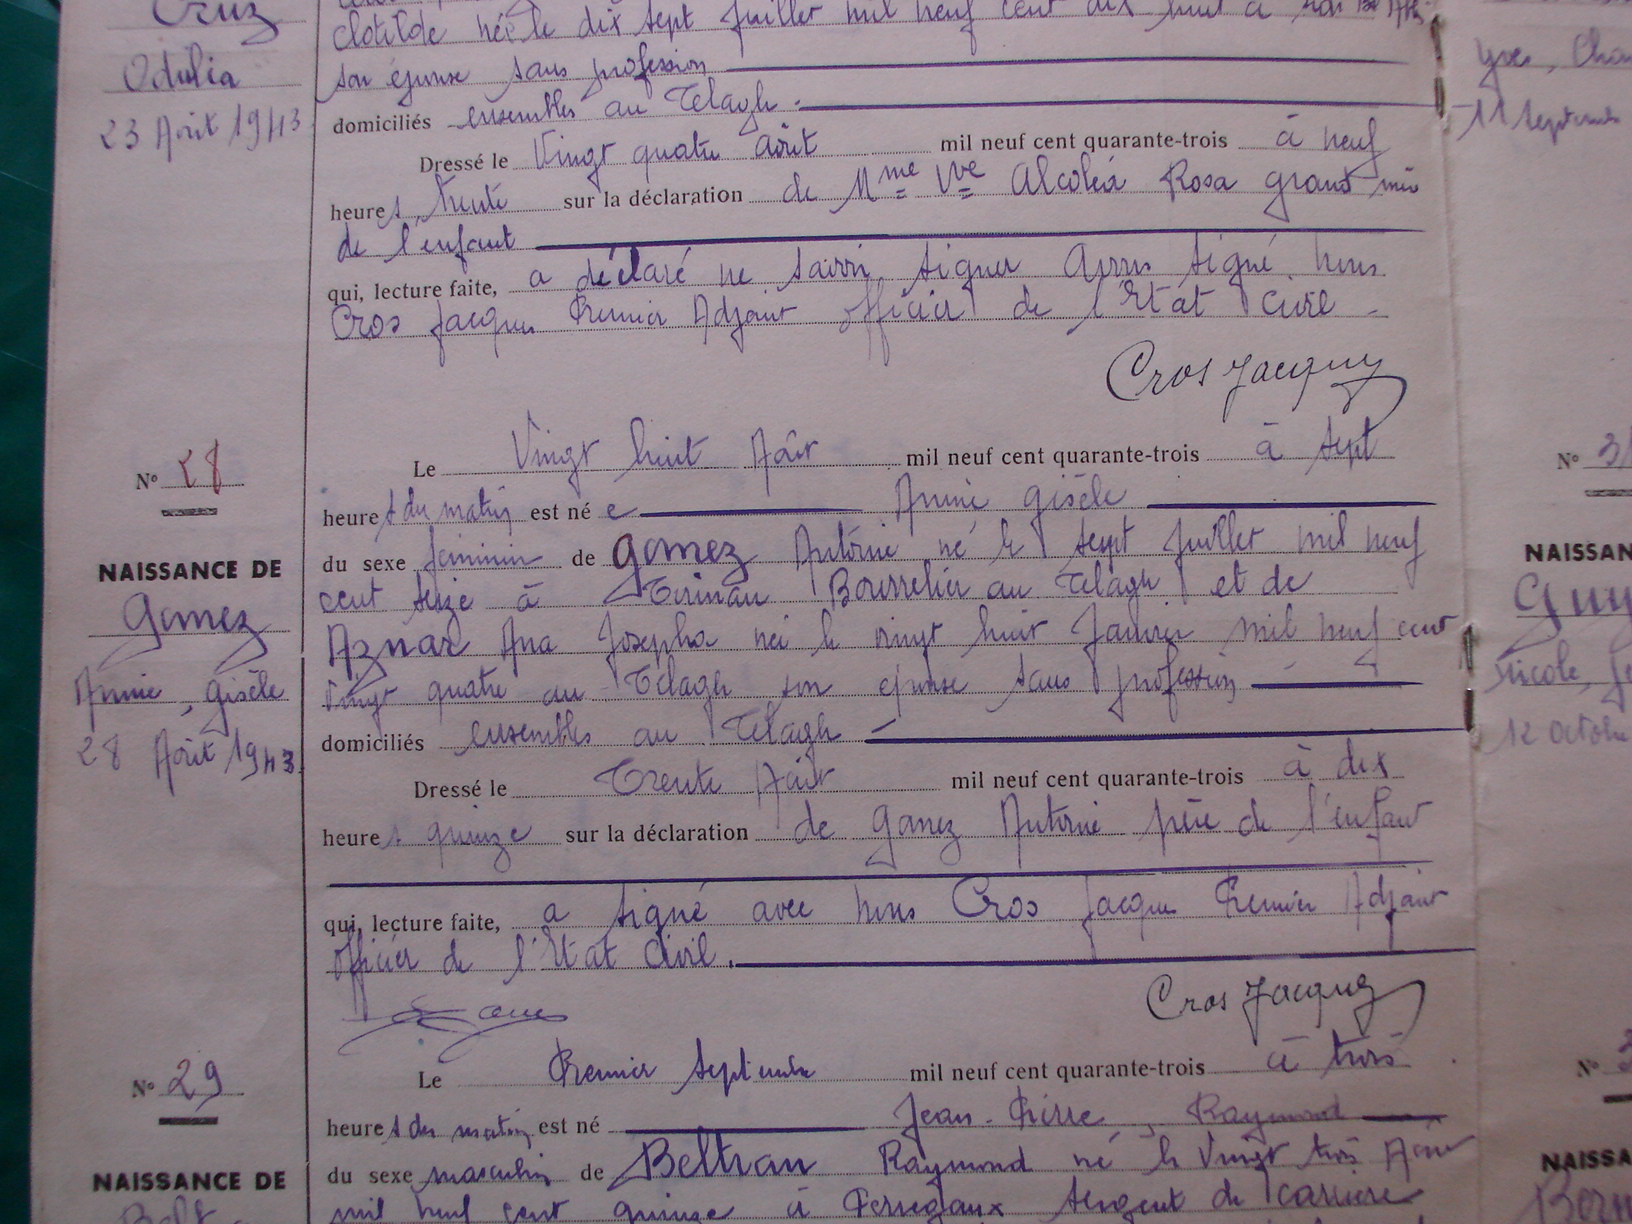 Cruz
Odulia
23 Août 1943
Clotilde née le dix sept Juillet mil neuf cent dix huit à
son épouse sans profession
domiciliés ensembles au Télagh
Dressé le Vingt quatre Août mil neuf cent quarante-trois à neuf
heures trente sur la déclaration de Mme Vve Alcoléa Rosa grand mère
de l'enfant
qui, lecture faite, a déclaré ne savoir signer avons signé nous
Cros Jacques Premier Adjoint officier de l'Etat Civil
Cros Jacques
No 28
NAISSANCE DE
Gomez
Annie, Gisèle
28 Août 1943
Le Vingt huit Août mil neuf cent quarante-trois à sept
heures du matin est née Annie Gisèle
du sexe féminin de Gomez Antoine né le sept Juillet mil neuf
cent seize à Bourrelier au Télagh et de
Aznar Ana Josepha née le vingt huit Janvier mil neuf cent
vingt quatre au Télagh son épouse sans profession
domiciliés ensembles au Télagh
Dressé le Trente Août mil neuf cent quarante-trois à dix
heures quinze sur la déclaration de Gomez Antoine père de l'enfant
qui, lecture faite, a signé avec nous Cros Jacques Premier Adjoint
officier de l'Etat Civil.
Cros Jacques
No 29
NAISSANCE DE
Le Premier Septembre mil neuf cent quarante-trois à trois
heures du matin est né Jean-Pierre, Raymond
du sexe masculin de Beltran Raymond né le Vingt trois Août
mil neuf cent quinze à Perregaux Sergent de carrière
Yves,
11 Septembre
No 3
NAISSAN
Guy
Nicole,
12 Octobre
No 3
NAISSA